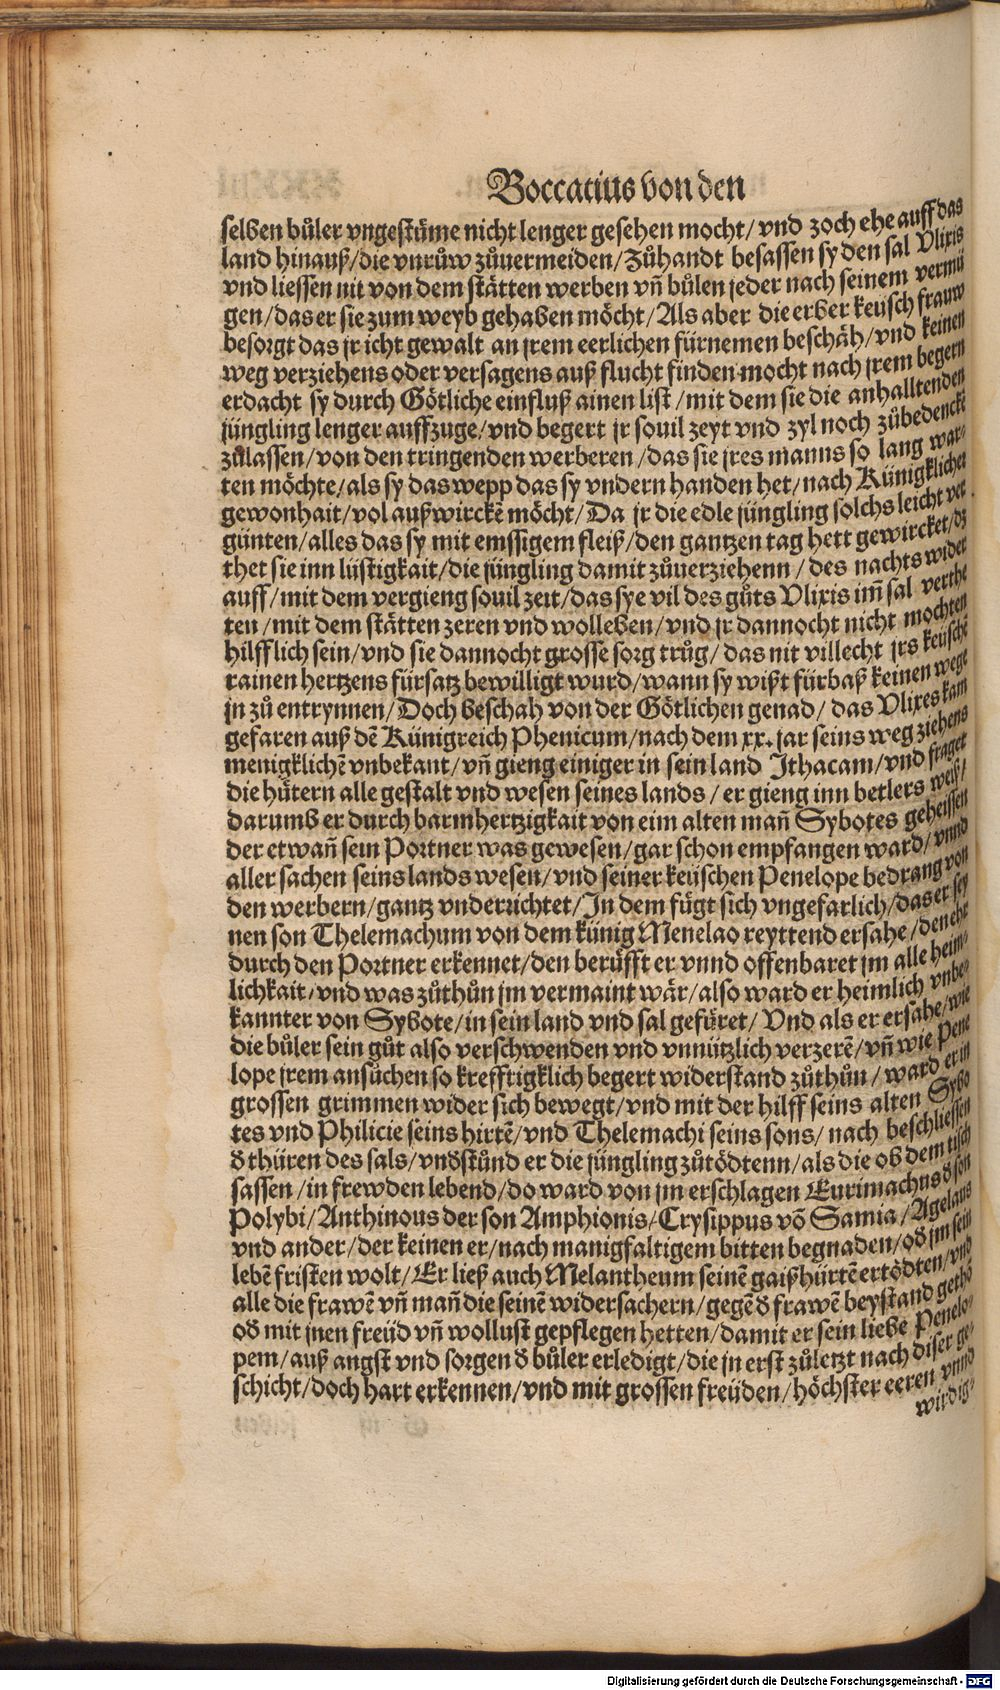 Boccatius von den
selben bůler vngestüme nicht lenger gesehen mocht/ vnd zoch ehe auff das
land hinauß/die vnrůw zůuermeiden/Zůhandt besassen sy den sal Vlixis
vnd liessen nit von dem stätten werben vñ bůlen jeder nach seinem vermü
gen/das er sie zum weyb gehaben möcht/Als aber die erber keusch frauw
besorgt das jr icht gewalt an jrem eerlichen fürnemen beschäh/vnd keinen
weg verziehens oder versagens auß flucht finden mocht nach jrem begern
erdacht sy durch Götliche einfluß ainen list/mit dem sie die anhalltenden
jüngling lenger auffzuge/vnd begert jr souil zeyt vnd zyl noch zůbedenckẽ
zůlassen/von den tringenden werberen/das sie jres manns so lang war-
ten möchte/als sy das wepp das sy vndern handen het/nach Künigklicher
gewonhait/vol außwirckẽ möcht/Da jr die edle jüngling solchs leicht ver
günten/alles das sy mit emssigem fleiß/den gantzen tag hett gewircket/dz
thet sie inn lüstigkait/die jüngling damit zůuerziehenn/des nachts wider
auff/mit dem vergieng souil zeit/das sye vil des gůts Vlixis im̃ sal verthe
ten/mit dem stätten zeren vnd wolleben/vnd jr dannocht nicht mochten
hilfflich sein/vnd sie dannocht grosse sorg trůg/das nit villecht jrs keuschẽ
rainen hertzens fürsatz bewilligt wurd/wann sy wißt fürbaß keinen wege
jn zů entrynnen/Doch beschah von der Götlichen genad/das Vlixes kam
gefaren auß dẽ Künigreich Phenicum/nach dem xx. jar seins weg ziehens
menigklichẽ vnbekant/vñ gieng einiger in sein land Ithacam/vnd fraget
die hütern alle gestalt vnd wesen seines lands/er gieng inn betlers weiß/
darumb er durch barmhertzigkait von eim alten mañ Sybotes geheissen
der etwañ sein Portner was gewesen/gar schon empfangen ward/vnnd
aller sachen seins lands wesen/vnd seiner keüschen Penelope bedrang von
den werbern/gantz vnderrichtet/In dem fügt sich vngefarlich/das er sey
nen son Thelemachum von dem künig Menelao reyttend ersahe/den ehr
durch den Portner erkennet/den berüfft er vnnd offenbaret jm alle heim-
lichkait/vnd was zůthůn jm vermaint wär/also ward er heimlich vnbe-
kannter von Sybote/in sein land vnd sal gefüret/Vnd als er ersahe/wie
die bůler sein gůt also verschwenden vnd vnnützlich verzerẽ/vñ wie Pene
lope jrem ansůchen so krefftigklich begert widerstand zůthůn/ward er in
grossen grimmen wider sich bewegt/vnd mit der hilff seins alten Sybo
tes vnd Philicie seins hirtẽ/vnd Thelemachi seins sons/nach beschliessen
ð thüren des sals/vnðstůnd er die jüngling zůtödtenn/als die ob dem tisch
sassen/in frewden lebend/do ward von jm erschlagen Eurimachus ð son
Polybi/Anthinous der son Amphionis/Crysippus võ Samia/Agelaus
vnd ander/der keinen er/nach manigfaltigem bitten begnaden/oð jm sein
lebẽ fristen wolt/Er ließ auch Melantheum seinẽ gaißhürtẽ ertödten/vnd
alle die frawẽ vñ mañ die seinẽ widersachern/gegẽ ð frawẽ beystand gethõ
oð mit jnen freüd vñ wollust gepflegen hetten/damit er sein liebe Penelo-
pem/auß angst vnd sorgen ð bůler erledigt/die jn erst zůletzt nach diser ge-
schicht/doch hart erkennen/vnd mit grossen freüden/höchster eeren vnnd
wirdig-
Digitalisierung gefördert durch die Deutsche Forschungsgemeinschaft - DFG